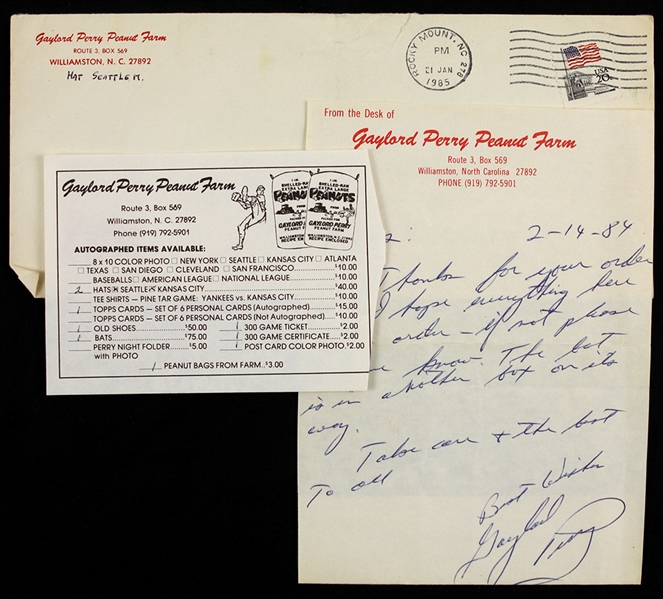 Gaylord Perry Peanut Farm
ROUTE 3, BOX 569
WILLIAMSTON, N. C. 27892
HAT SEATTLE M.
ROCKY MOUNT, NC 278
PM
21 JAN
1985
USA
20c
From the Desk of
Gaylord Perry Peanut Farm
Route 3, Box 569
Williamston, North Carolina 27892
PHONE (919) 792-5901
2-14-84
Thanks for your order
I hope everything here
order - if not please
know. The bat
is in another box on its
way.
Take care + the best
To all
Best Wishes
Gaylord Perry
Gaylord Perry Peanut Farm
Route 3, Box 569
Williamston, N. C. 27892
Phone (919) 792-5901
SHELLED-RAW
EXTRA LARGE
PEANUTS
GAYLORD PERRY
PEANUT FARM
RECIPE ENCLOSED
SHELLED-RAW
EXTRA LARGE
PEANUTS
GAYLORD PERRY
PEANUT FARM
RECIPE ENCLOSED
AUTOGRAPHED ITEMS AVAILABLE:
8 x 10 COLOR PHOTO □ NEW YORK □ SEATTLE □ KANSAS CITY □ ATLANTA
□ TEXAS □ SAN DIEGO □ CLEVELAND □ SAN FRANCISCO $10.00
BASEBALLS □ AMERICAN LEAGUE □ NATIONAL LEAGUE $10.00
2 HATS SEATTLE KANSAS CITY $40.00
TEE SHIRTS — PINE TAR GAME: YANKEES vs. KANSAS CITY $10.00
1 TOPPS CARDS — SET OF 6 PERSONAL CARDS (Autographed) $15.00
TOPPS CARDS — SET OF 6 PERSONAL CARDS (Not Autographed) $10.00
1 OLD SHOES $50.00 1 300 GAME TICKET $2.00
1 BATS $75.00 1 300 GAME CERTIFICATE $2.00
PERRY NIGHT FOLDER $5.00 1 POST CARD COLOR PHOTO $2.00
with PHOTO
1 PEANUT BAGS FROM FARM $3.00